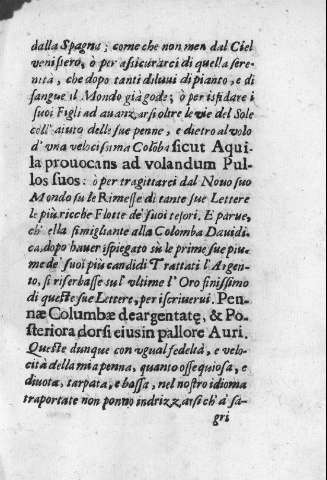 dalla Spagna; come che non men dal Ciel
veniſſero, ò per aſſicurarci di quella ſere-
nità, che dopo tanti diluui di pianto, e di
ſangue il Mondo già gode; ò per iſfidare i
ſuoi Figli ad auanzarſi oltre le vie del Sole
coll' aiuto delle ſue penne, e dietro al volo
d' vna velociſsima Colõba ſicut Aqui-
la prouocans ad volandum Pul-
los ſuos: ò per tragittarci dal Nouo ſuo
Mondo ſu le Rimeſſe di tante ſue Lettere
le più ricche Flotte de' ſuoi teſori. E parue,
ch' ella ſimigliante alla Colomba Dauidi-
ca, dopo hauer iſpiegato sù le prime ſue piu-
me de' ſuoi più candidi Trattati l' Argen-
to, ſi riſerbaſſe sul' vltime l' Oro finiſsimo
di queſte ſue Lettere, per iſcriuerui. Pen-
næ Columbæ deargentatę, & Po-
ſteriora dorſi eius in pallore Auri.
Queſte dunque con vgual fedeltà, e velo-
cità della mia penna, quanto oſſequioſa, e
diuota, tarpata, e baſſa, nel noſtro idioma
traportate non ponno indrizzarſi ch' à ſa-
gri